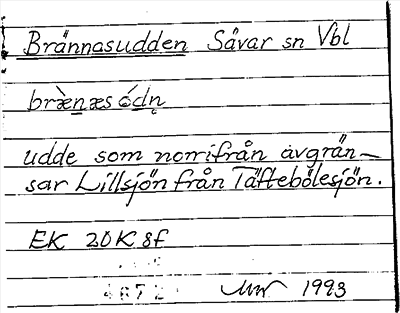 Brännasudden Sävar sn Vbl
bræ̀næs ódn̥
udde som norrifrån avgrän-
sar Lillsjön från Täftebölesjön.
EK 20K 8f
1993